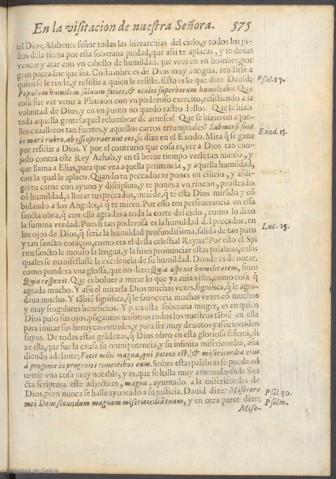 En la visitacion de nuestra Señora. 575
tal Dios; Alabente señor todas las hierarchias del cielo, y todos los justos
dela tierra por esta soberana piedad, que assi te aplacas, y te dexas
vencer y atar con vn cabello de humildad, que vees en vn hombre, por
gran peccador que sea. Costumbre es de Dios muy antigua, ren irse a
quien se le rinde, y resistir a quien le resiste. Esto es lo que dize Dauid;
Psal. 17.
Populum humilem saluum facies, & oculos superborum humiliabis. Que
cosa fue ver venir a Pharaon con vn poderoso exercito, resistiendo a la
voluntad de Dios, y en vn punto no quedo rastro dellos. Que se hizo
toda aquella gente? aquel relumbrar de arneses? Que se hizieron aquellos
caualleros tan fuertes, y aquellos carros triumphales? Submersi sunt
in mari rubro, abyssi operuerunt eos, se dize en el Exodo. Mira q̃ se gana
Exod. 15.
por resistir a Dios. Y por el contrario que cosa es, ver a Dios tan enojado
contra este Rey Achab, y en tã breue tiempo verle tan manso, y
que llama a Elias, para que vea aquella penitencia, y aquella humildad,
con la qual le aplaco. Quando tu peccador te pones en cilicio, y castigas
tu carne con ayuno y disciplina, y te pones a vn rincon, prostrado
cõ humildad, a llorar tus peccados, aduierte, q̃ te esta Dios mirãdo y cõbidando
a los Angeles, a q̃ te miren. Por esto ten perseuerancia en essa
sancta obra, q̃ con ella agradas a toda la corte del cielo, como lo dixo
la summa verdad. Pues si tan poderosa es la humildad d̃l peccador, en
Luc. 15.
los ojos de Dios, q̃ seria la humildad profundissima, salida de tan puro
y tan sancto coraçon, como era el desta celestial Reyna? Por esso el Spiritu
sancto le mouio la lengua, y la hizo pronunciar estas palabras, colas
quales se manifestasse la excelencia de su humildad. Donde es de notar,
como pondera vna glossa, que no dize; Quia aspexit humilitatem, sino:
Quia respexit. Que es boluer a mirar lo que ya auia visto, como cosa q̃
agrada mucho. Y assi el mirarla Dios muchas vezes, significa, q̃ le agradaua
mucho. Y tãbiẽ significa, q̃ le fauorecia muchas vezes cõ muchos
y muy singulares beneficios. Y pues esta soberana muger, es en quien
Dios puso sus ojos, pongamos nosotros todos los nuestros tãbiẽ en ella
para imitar sus heroycas virtudes, y para ser muy deuotos y aficionados
suyos. De todas estas grãdezas, q̃ Dios obro en esta gloriosa señora, dize
ella, que fue la causa su omnipotencia, y su infinita misericordia, añadiendo
adelante; Fecit mihi magna, qui potens est, & misericordia eius
à progenie in progenies timentibus eum. Sobre estas palabras se puede aduertir
vna cosa muy notable, y es, que se halla muy amenudo en la Sancta
scriptura este adjectiuo, magna, ayuntado a la misericordia de
Dios, pero nunca se halla ayuntado a su justicia. Dauid dize: Miserere
Psal. 50.
mei Deus secundum magnam misericordiã tuam, y en otra parte dize;
Psalm.
Mise-